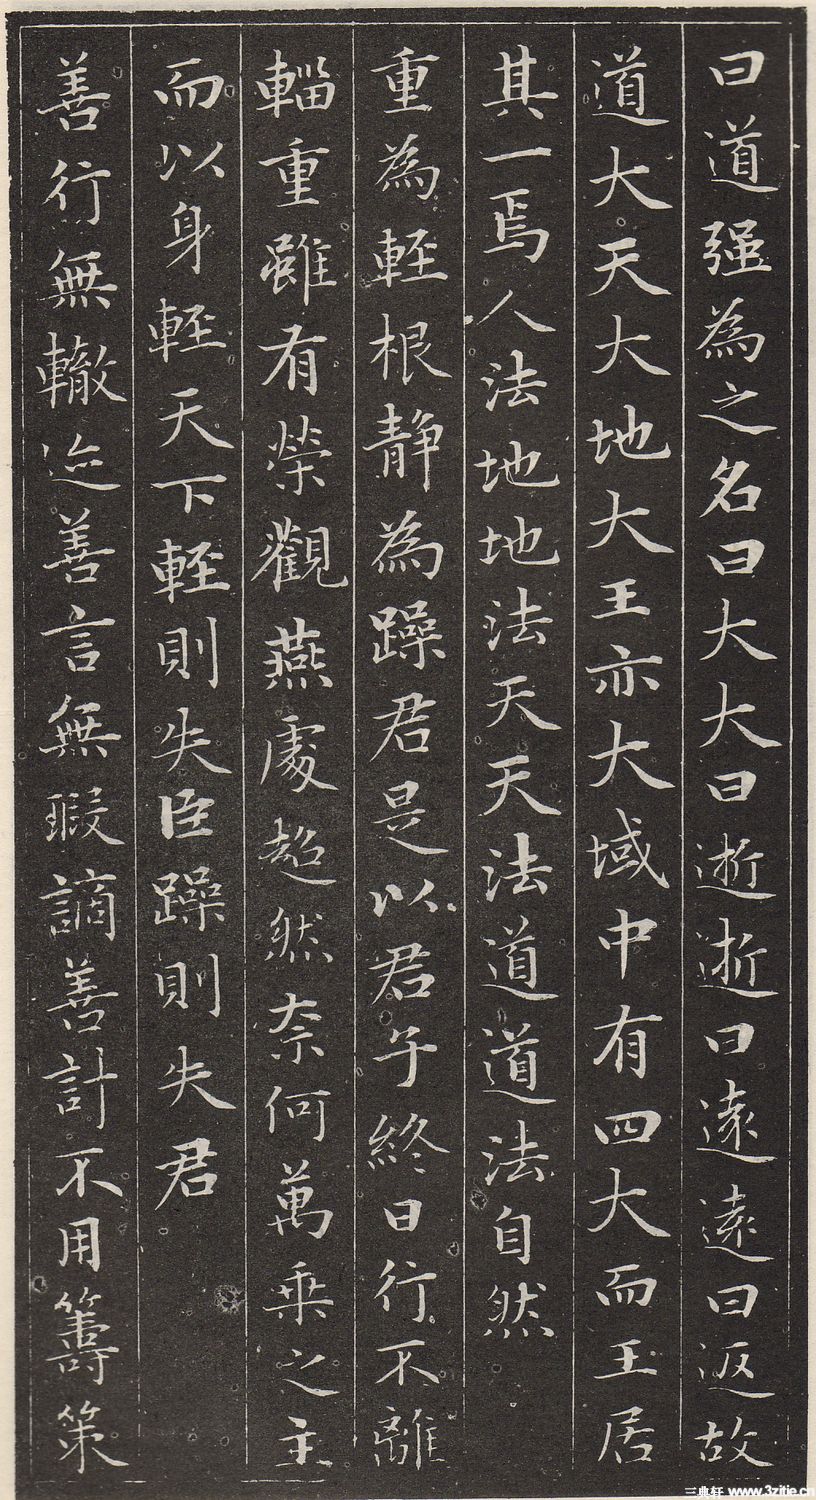 曰道强為之名曰大大曰逝逝曰遠遠曰返故
道大天大地大王亦大域中有四大而王居
其一焉人法地地法天天法道道法自然
重為輕根静為躁君是以君子終日行不離
輜重雖有榮觀燕處超然柰何萬乘之主
而以身輕天下輕則失臣躁則失君
善行無轍迹善言無瑕謫善計不用籌策
三典轩 www.3zitie.cn